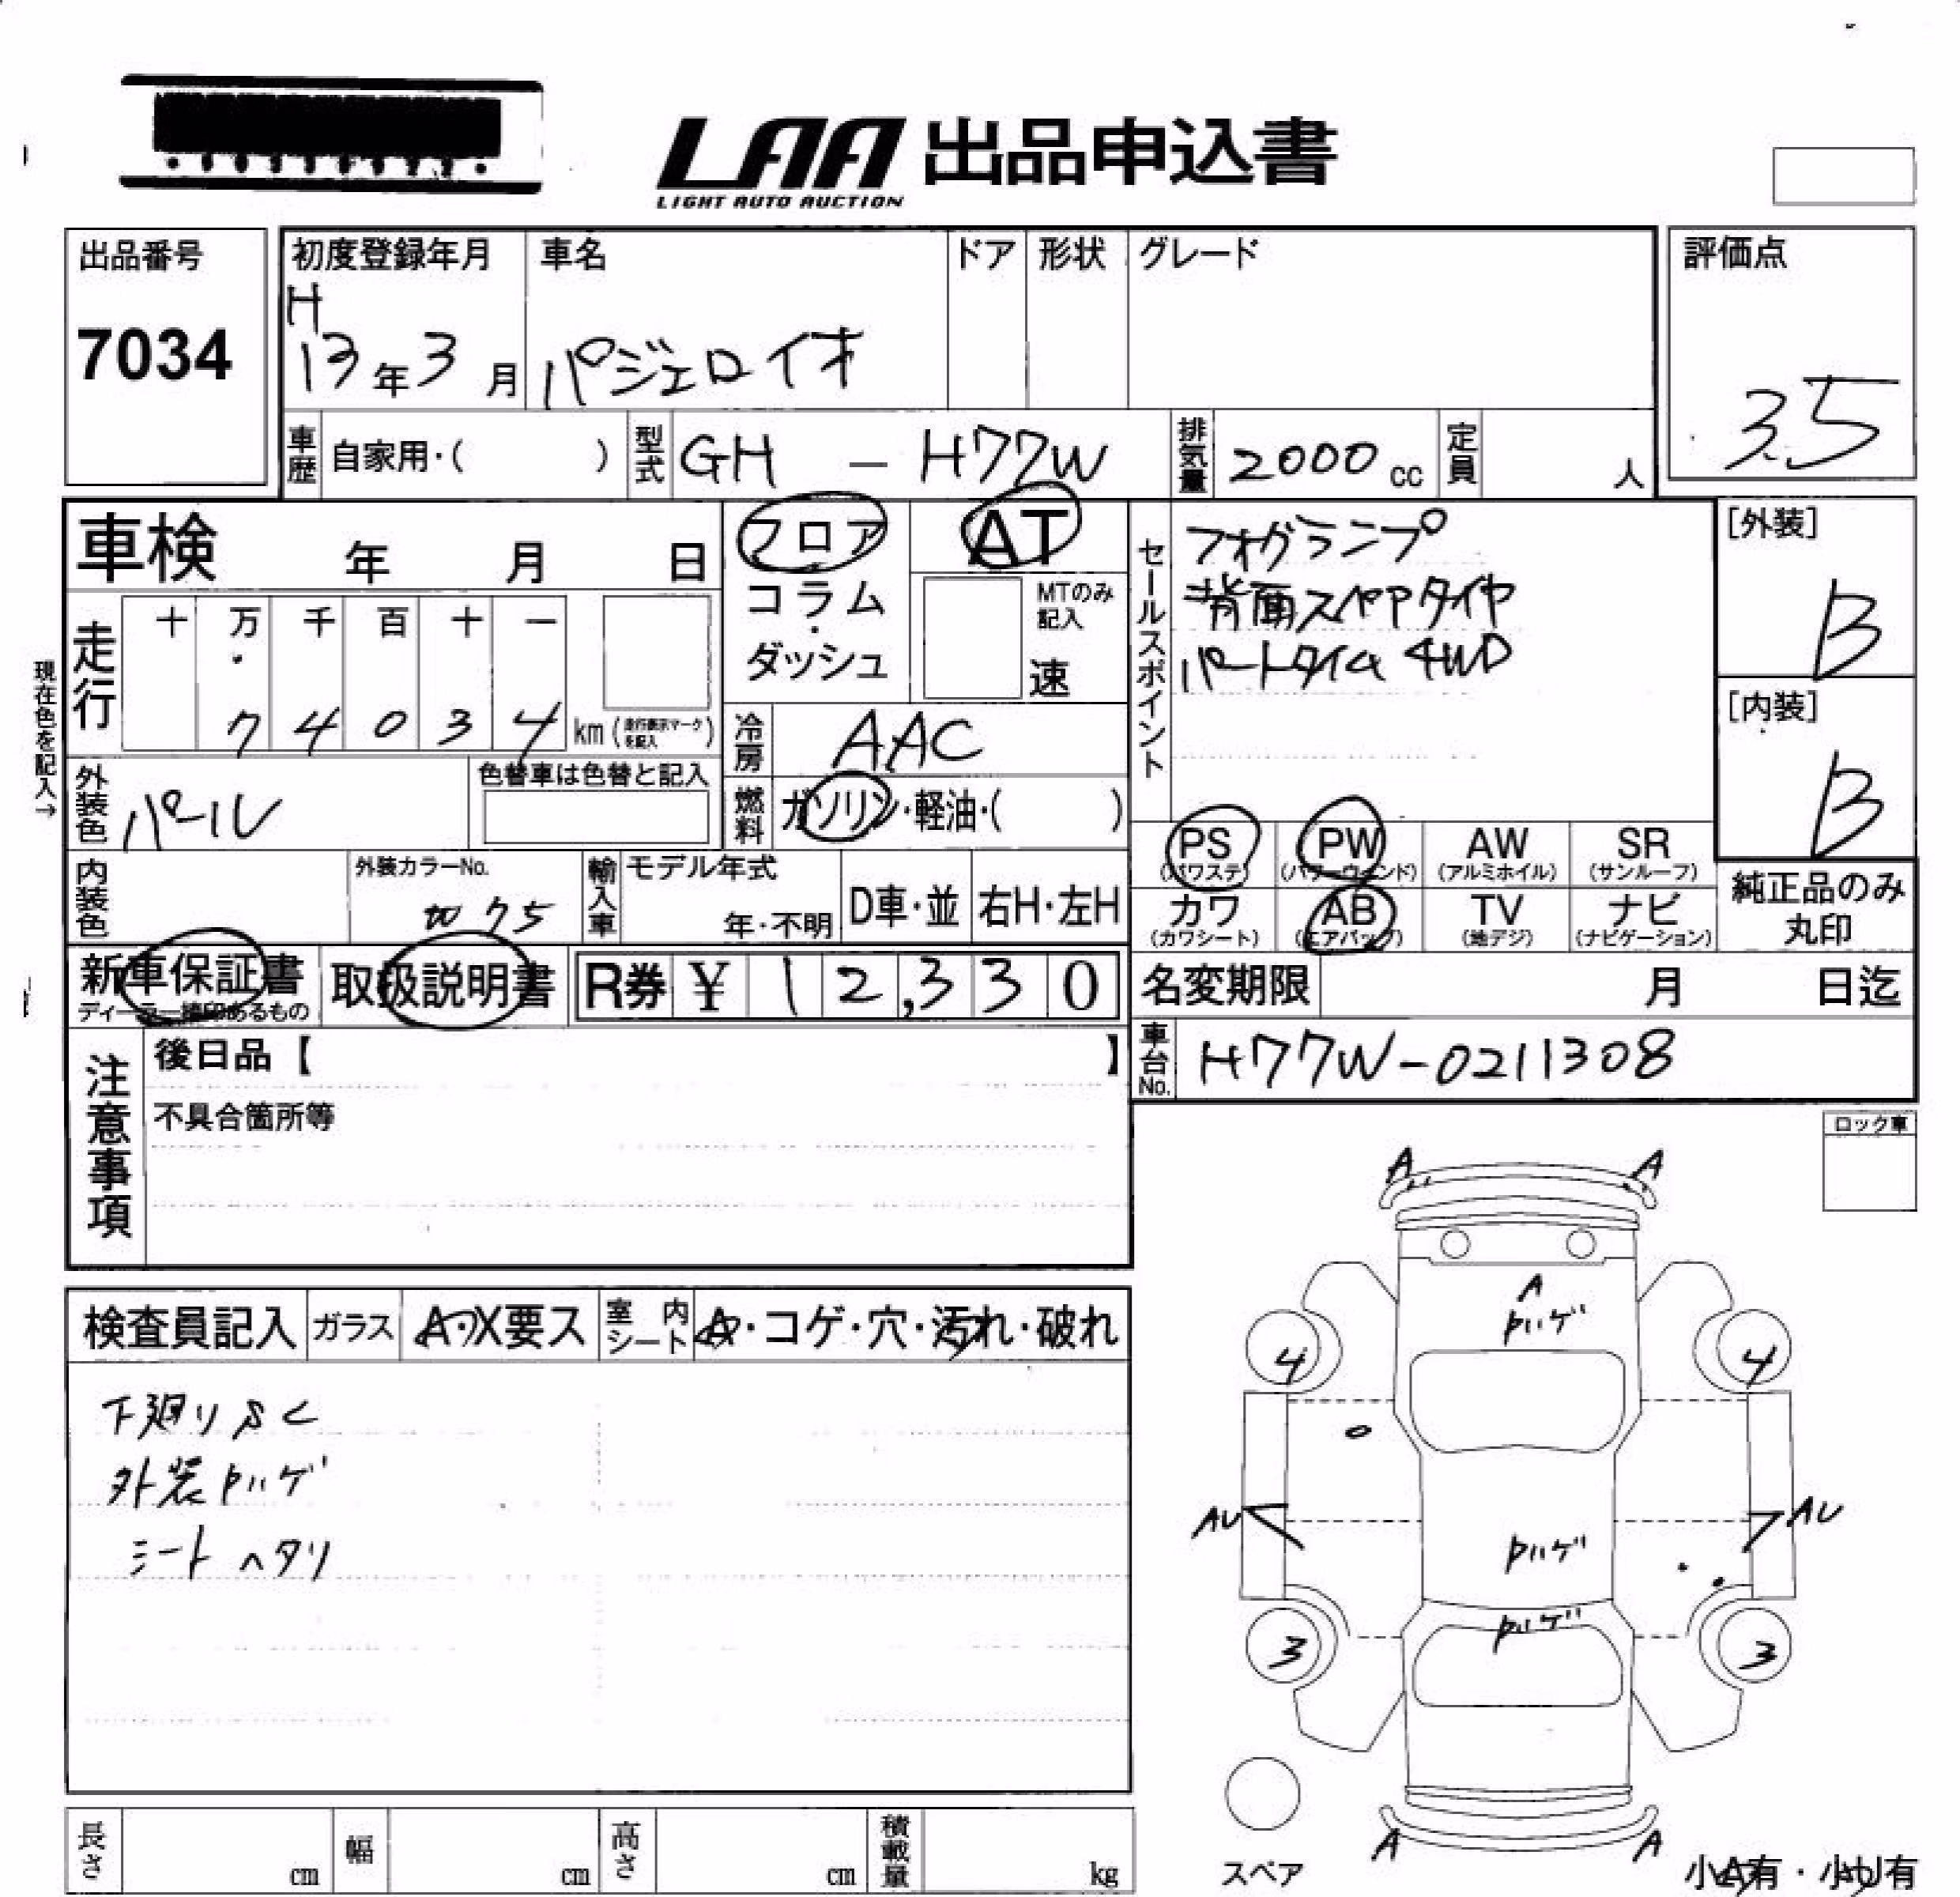 LAA 出品申込書
LIGHT AUTO AUCTION
出品番号
7034
初度登録年月
H
13年3月
車名
パジェロイオ
ドア
形状
グレード
評価点
3.5
車歴
自家用・( )
型式
GH — H77W
排気量
2000 cc
定員
人
車検 年 月 日
フロア
コラム
・
ダッシュ
AT
MTのみ
記入
速
セールスポイント
フォグランプ
背面スペアタイヤ
パートタイム 4WD
[外装]
B
[内装]
B
現在色を記入→
走行
十 万 千 百 十 一
7 4 0 3 4 km (走行表示マークを記入)
冷房
AAC
外装色
パール
色替車は色替と記入
燃料
ガソリン・軽油・( )
PS (パワステ)
PW (パワーウインド)
AW (アルミホイル)
SR (サンルーフ)
カワ (カワシート)
AB (エアバッグ)
TV (地デジ)
ナビ (ナビゲーション)
純正品のみ
丸印
内装色
外装カラーNo.
W75
輸入車
モデル年式
年・不明
D車・並
右H・左H
新車保証書
取扱説明書
R券 ¥ 12,330
名変期限 月 日迄
車台No.
H77W-0211308
注意事項
後日品【 】
不具合箇所等
ロック車
検査員記入
ガラス
A・X要ス
室内シート
A・コゲ・穴・汚れ・破れ
下廻りSC
外装ハゲ
シートヘタリ
A A
A
ハゲ
4 4
AU AU
ハゲ
ハゲ
3 3
A A
スペア
小A有・小U有
長さ cm
幅 cm
高さ cm
積載量 kg